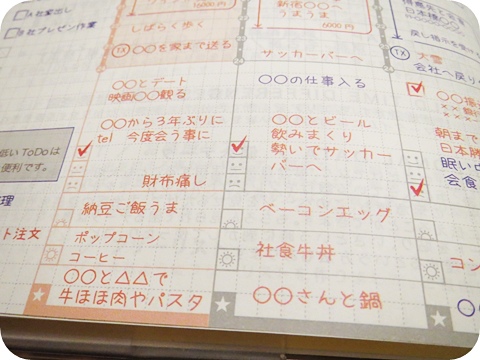 A社蔵出し
B社プレゼン作業
低い ToDo は
便利です。
ト注文
6000円
しばらく歩く
TX ○○を家まで送る
○○とデート
映画○○観る
○○から3年ぶりに
tel 今度会う事に
財布痛し
納豆ご飯うま
ポップコーン
コーヒー
○○と△△で
牛ほほ肉やパスタ
新宿○○へ
うまうま
6000円
サッカーバーへ
○○の仕事入る
○○とビール
飲みまくり
勢いでサッカー
バーへ
ベーコンエッグ
社食牛丼
○○さんと鍋
日本橋
TX 大雪
会社へ戻り
朝まで
日本勝
眠い
会食
コン